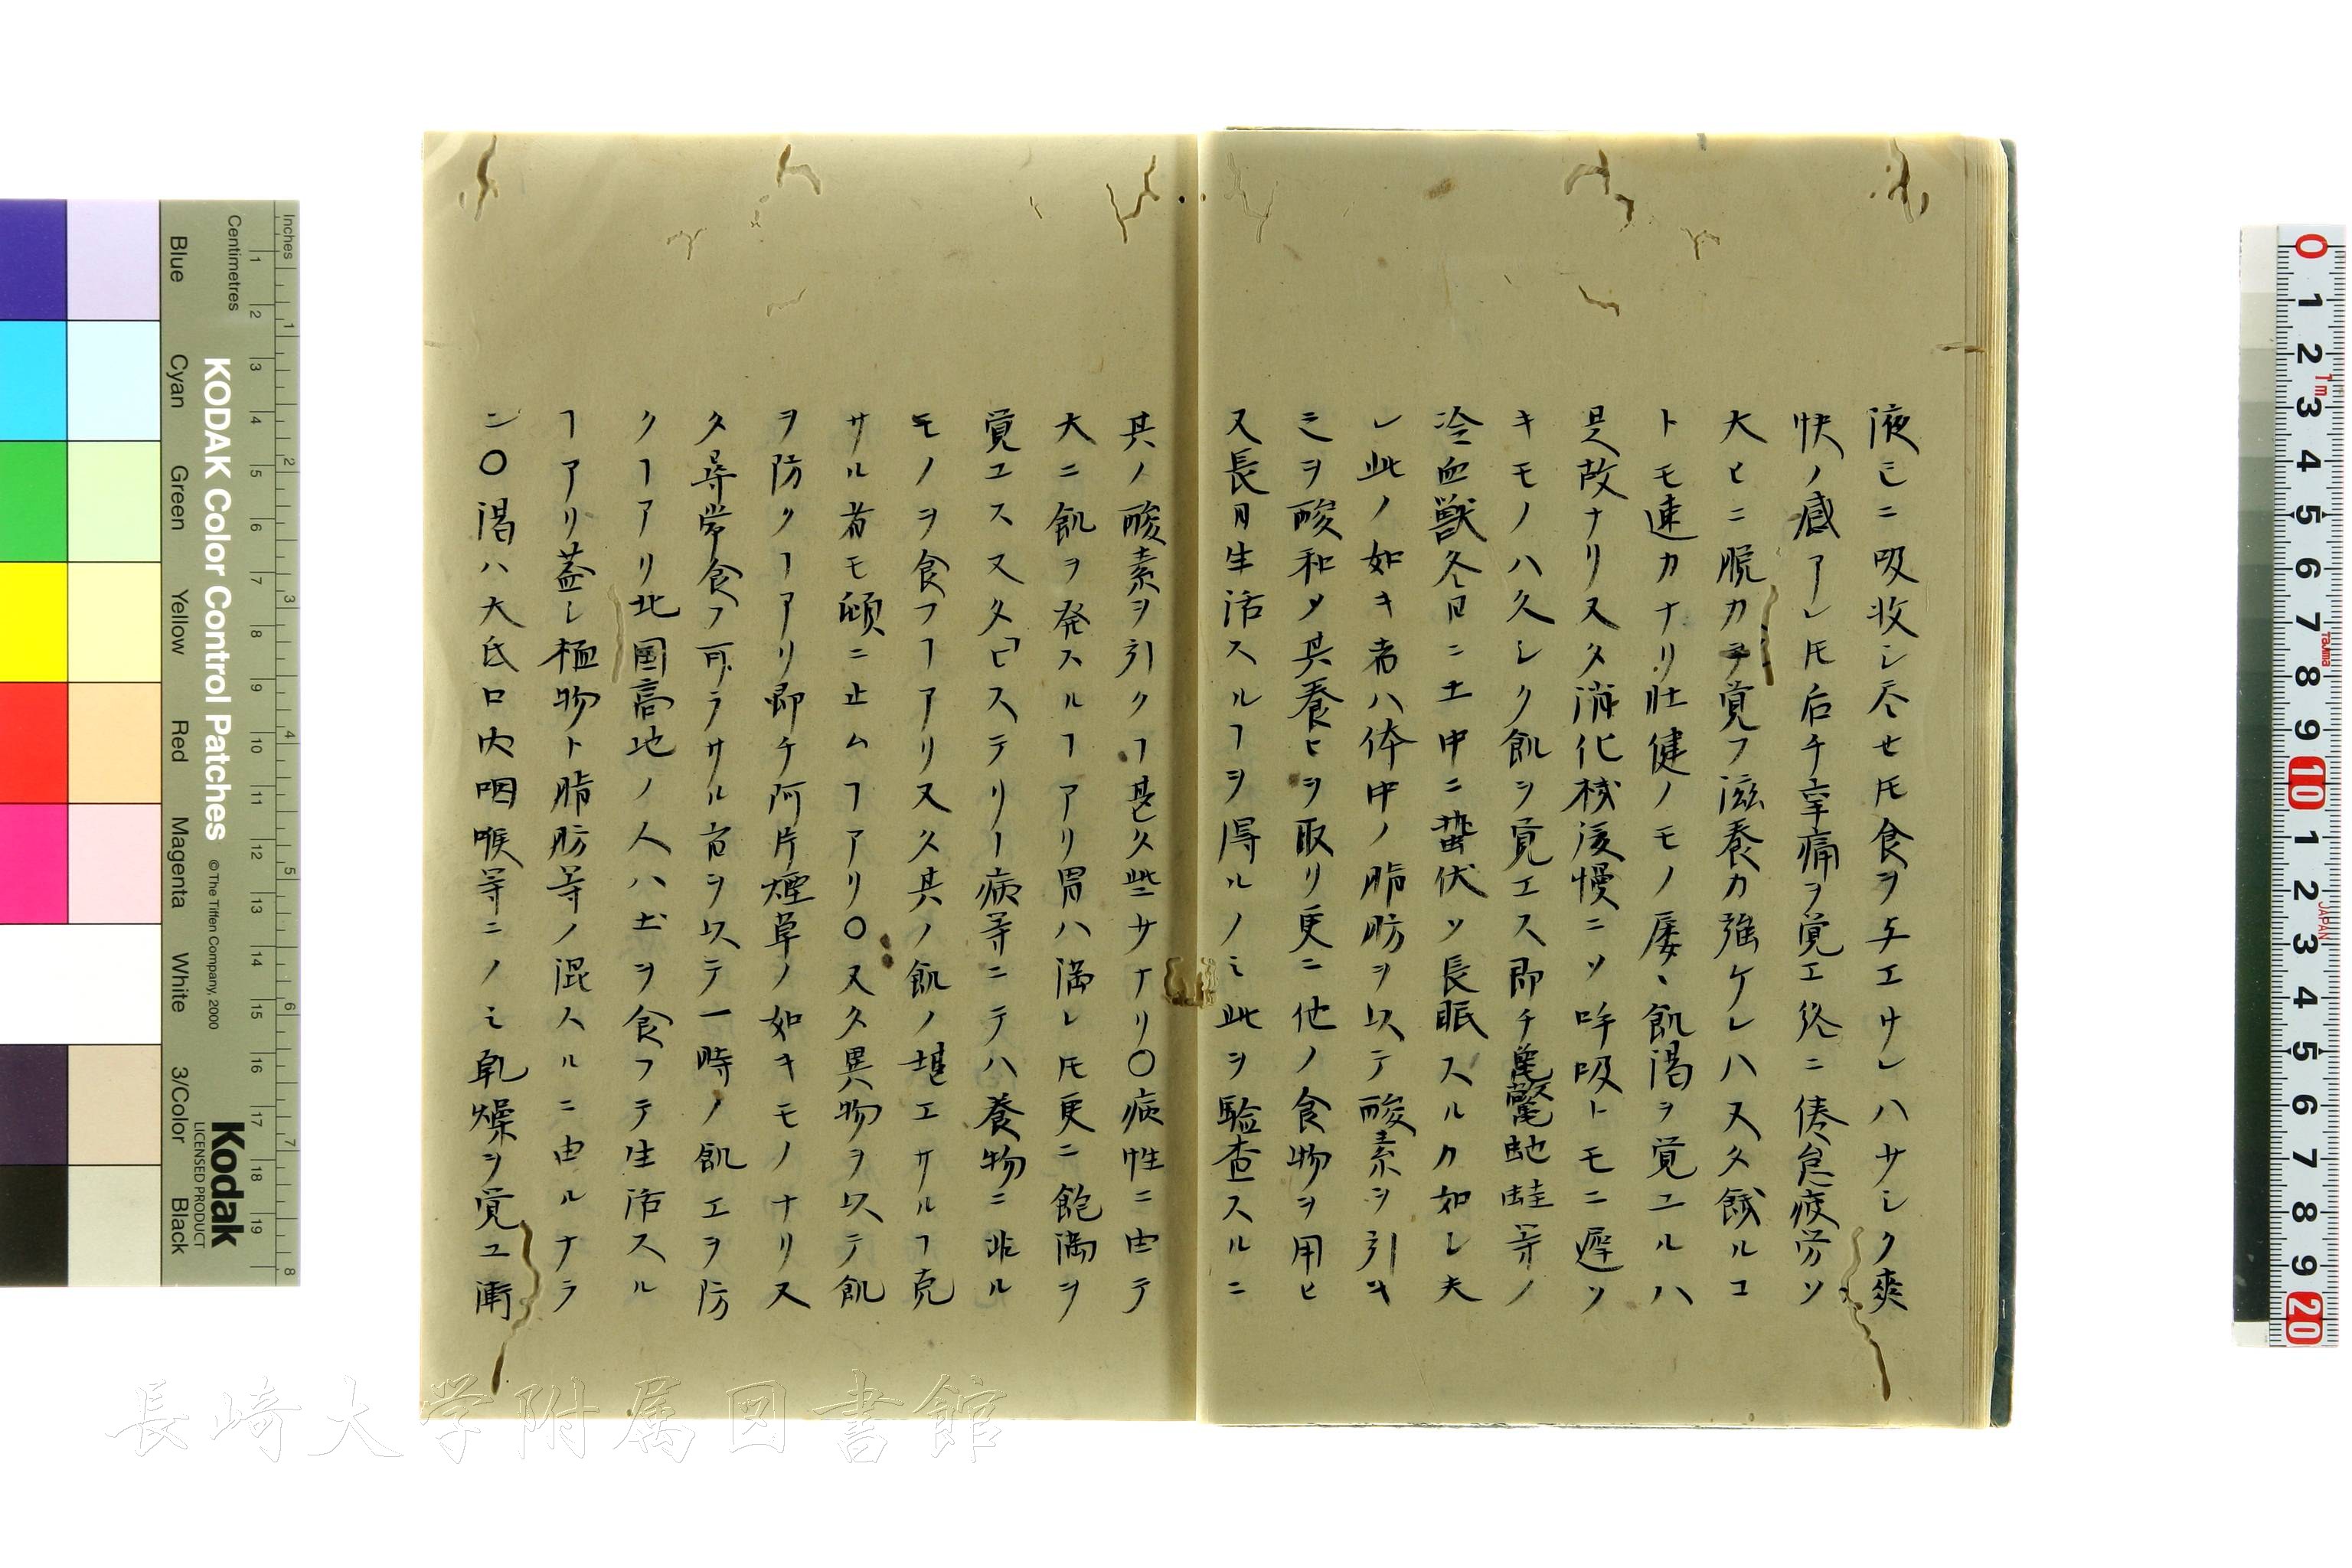 液ミニ吸收シ尽セ𪜈食ヲ与エサレハサシク爽
快ノ感アレ𪜈后チ辛痛ヲ覚エ終ニ倦怠疲労ソ
大ヒニ脱カヲ覚フ滋養カ強ケレハ又タ餓ルコ
トモ速カナリ壯健ノモノ屡〻飢渇ヲ覚ユルハ
是故ナリ又タ消化機後慢ニソ呼吸トモニ遅ソ
キモノハ久シク飢ヲ覚エス即チ亀鼈蛇蛙等ノ
冷血獣冬日ニ土中ニ蟄伏ソ長眠スルカ如シ夫
レ此ノ如キ者ハ体中ノ脂肪ヲ以テ酸素ヲ引キ
ミヲ酸和ソ其養ヒヲ取リ更ニ他ノ食物ヲ用ヒ
又長月生活スルヿヲ得ルノミ此ヲ驗査スルニ
其ノ酸素ヲ引クヿ甚タ些サナリ〇病性ニ由テ
大ニ飢ヲ発スルヿアリ胃ハ満レ𪜈更ニ飽満ヲ
覚ユス又タヒステリー病等ニテハ養物ニ非ル
モノヲ食フヿアリ又タ其ノ飢ノ堪エサルヿ克
サル者モ頓ニ止ムヿアリ〇又タ異物ヲ以テ飢
ヲ防クヿアリ即チ阿片煙草ノ如キモノナリ又
タ尋常食フ可ラサル者ヲ以テ一時ノ飢エヲ防
クヿアリ北国高地ノ人ハ土ヲ食フテ生活スル
ヿアリ蓋シ植物ト脂肪等ノ混スルニ由ルナラ
ン〇渇ハ大氐口内咽喉等ニノミ乾燥ヲ覚ユ
KODAK Color Control Patches
© The Tiffen Company, 2000
Kodak
LICENSED PRODUCT
Inches
Centimetres
Blue
Cyan
Green
Yellow
Red
Magenta
White
3/Color
Black
長崎大学附属図書館